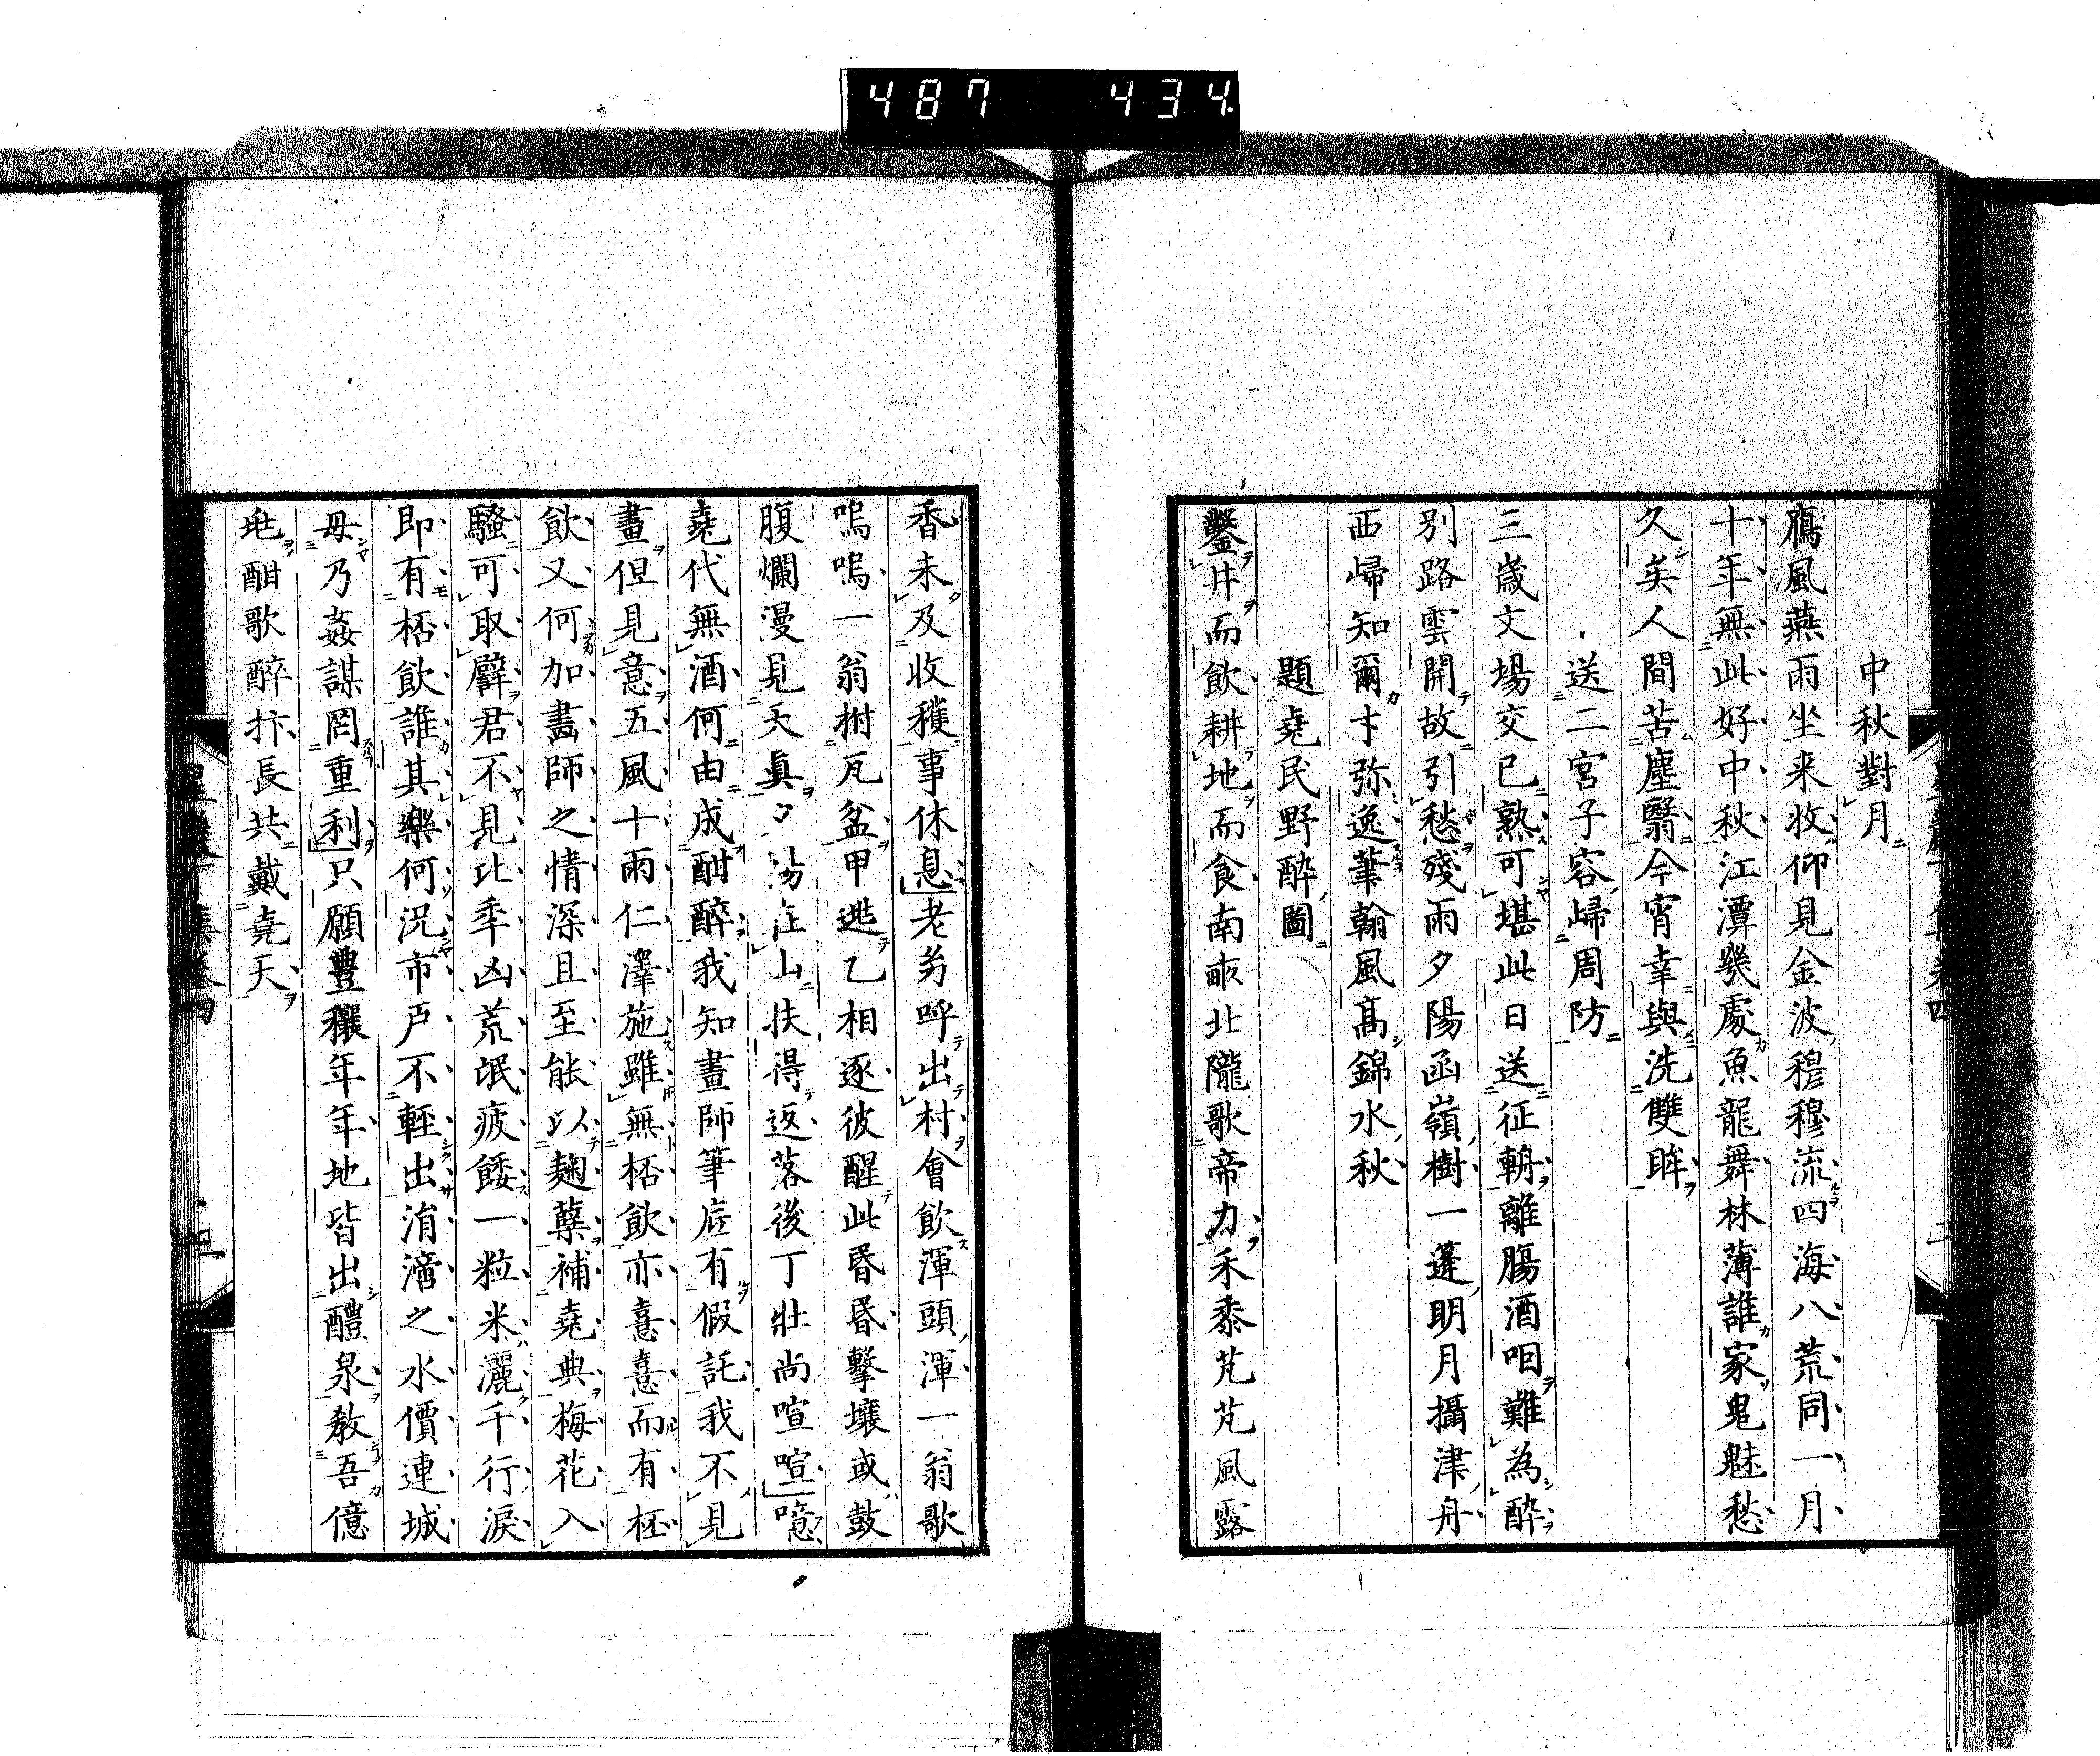 487 434.
中秋對月
鴈風燕雨坐来收仰見金波穆穆流四海八荒同一月
十年無此好中秋江潭幾處魚龍舞林薄誰家鬼魅愁
久矣人間苦塵翳今宵幸與洗雙眸
送二宮子容歸周防
三歲文場交已熟可堪此日送征輈離膓酒咽難為酔
別路雲開故引愁殘雨夕陽函嶺樹一蓬明月攝津舟
西歸知爾才弥逸筆翰風髙錦水秋
題堯民野酔圖
鑿井而飲耕地而食南畞北隴歌帝力禾黍芃芃風露
香未及收穫事休息老幼呼出村會飲渾頭渾一翁歌
嗚嗚一翁拊瓦盆甲逃乙相逐彼醒此昏昏擊壤或鼓
腹爛漫見天真夕陽在山扶得返落後丁壯尚喧喧噫
堯代無酒何由成酣醉我知畫師筆底有假託我不見
畫但見意五風十雨仁澤施雖無桮飲亦憙憙而有桮
飲又何加畵師之情深且至能以麹蘖補堯典梅花入
騷可取譬君不見比年凶荒氓疲餧一粒米灑千行淚
即有桮飲誰其樂何況市戸不輕出涓濇之水價連城
毋乃姦謀罔重利只願豊穰年年年地皆出醴泉教吾億
兆酣歌醉抃長共戴堯天